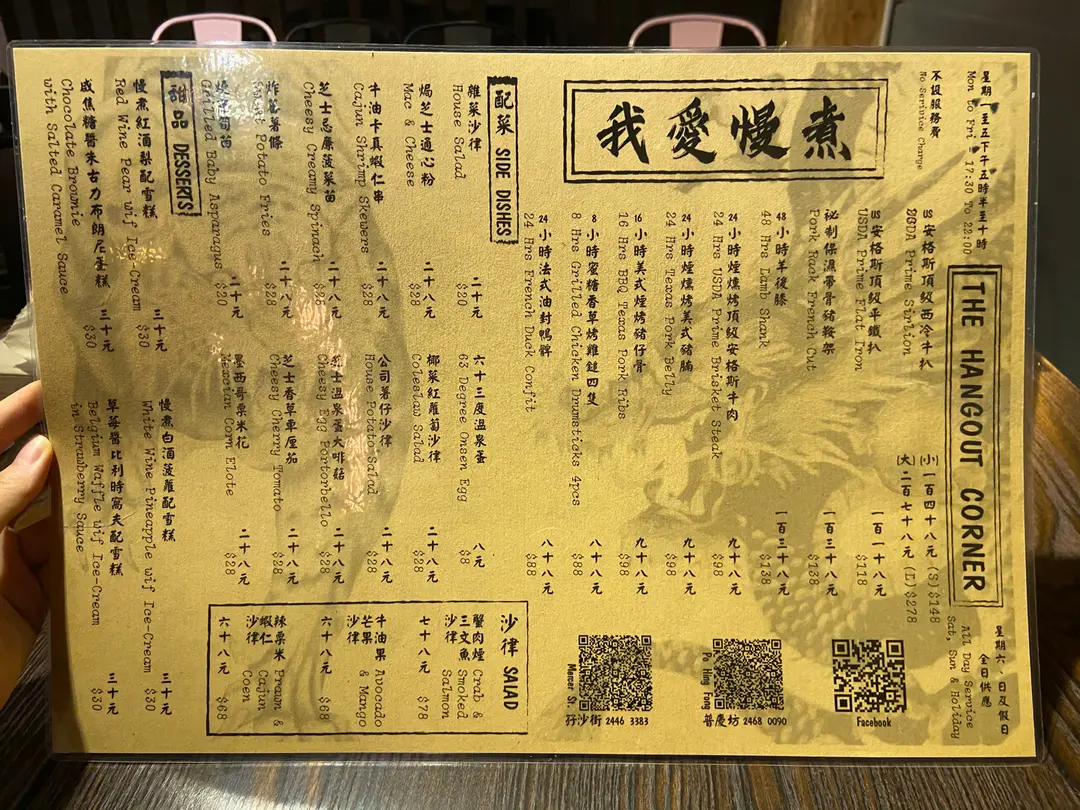 我愛慢煮
THE HANGOUT CORNER
星期一至五下午五時半至十時
Mon To Fri : 17:30 To 22:00
不設服務費
No Service Charge
星期六、日及假日
全日供應
All Day Service
Sat, Sun & Holiday
US安格斯頂級西冷牛扒
USDA Prime Sirlion
(小)一百四十八元 (S) $148
(大)二百七十八元 (L) $278
US安格斯頂級平鐵扒
USDA Prime Flat Iron
一百一十八元
$118
祕制保濕帶骨豬鞍架
Pork Rack French Cut
一百三十八元
$138
48小時羊後膝
48 Hrs Lamb Shank
一百三十八元
$138
24小時煙燻烤頂級安格斯牛肉
24 Hrs USDA Prime Brisket Steak
九十八元
$98
24小時煙燻烤美式豬腩
24 Hrs Texas Pork Belly
九十八元
$98
16小時美式煙烤豬仔骨
16 Hrs BBQ Texas Pork Ribs
九十八元
$98
8小時蜜糖香草烤雞鎚四隻
8 Hrs Grilled Chicken Drumsticks 4pcs
八十八元
$88
24小時法式油封鴨髀
24 Hrs French Duck Confit
八十八元
$88
Facebook
Po Hing Fong
普慶坊 2468 0090
Mercer St.
孖沙街 2446 3383
配菜 SIDE DISHES
雜菜沙律
House Salad
二十元
$20
六十三度溫泉蛋
63 Degree Onsen Egg
八元
$8
焗芝士通心粉
Mac & Cheese
二十八元
$28
椰菜紅蘿蔔沙律
Coleslaw Salad
二十八元
$28
牛油卡真蝦仁串
Cajun Shrimp Skewers
二十八元
$28
公司薯仔沙律
House Potato Salad
二十八元
$28
芝士忌廉菠菜苗
Cheesy Creamy Spinach
二十八元
$28
芝士溫泉蛋大啡菇
Cheesy Egg Portorbello
二十八元
$28
炸蕃薯條
Sweet Potato Fries
二十八元
$28
芝士香草車厘茄
Cheesy Cherry Tomato
二十八元
$28
Grilled Baby Asparagus
二十元
$20
墨西哥粟米花
Mexcian Corn Elote
二十八元
$28
甜品 DESSERTS
慢煮紅酒梨配雪糕
Red Wine Pear wif Ice-Cream
三十元
$30
慢煮白酒菠蘿配雪糕
White Wine Pineapple wif Ice-Cream
三十元
$30
咸焦糖醬朱古力布朗尼蛋糕
Chocolate Brownie
with Salted Caramel Sauce
三十元
$30
草莓醬比利時窩夫配雪糕
Belgium Waffle wif Ice-Cream
in Strawberry Sauce
三十元
$30
沙律 SALAD
蟹肉煙 Crab &
三文魚 Smoked
沙律 Salmon
七十八元 $78
牛油果 Avocado
芒果 & Mango
沙律
六十八元 $68
辣粟米 Prawn &
蝦仁 Cajun
沙律 Coen
六十八元 $68